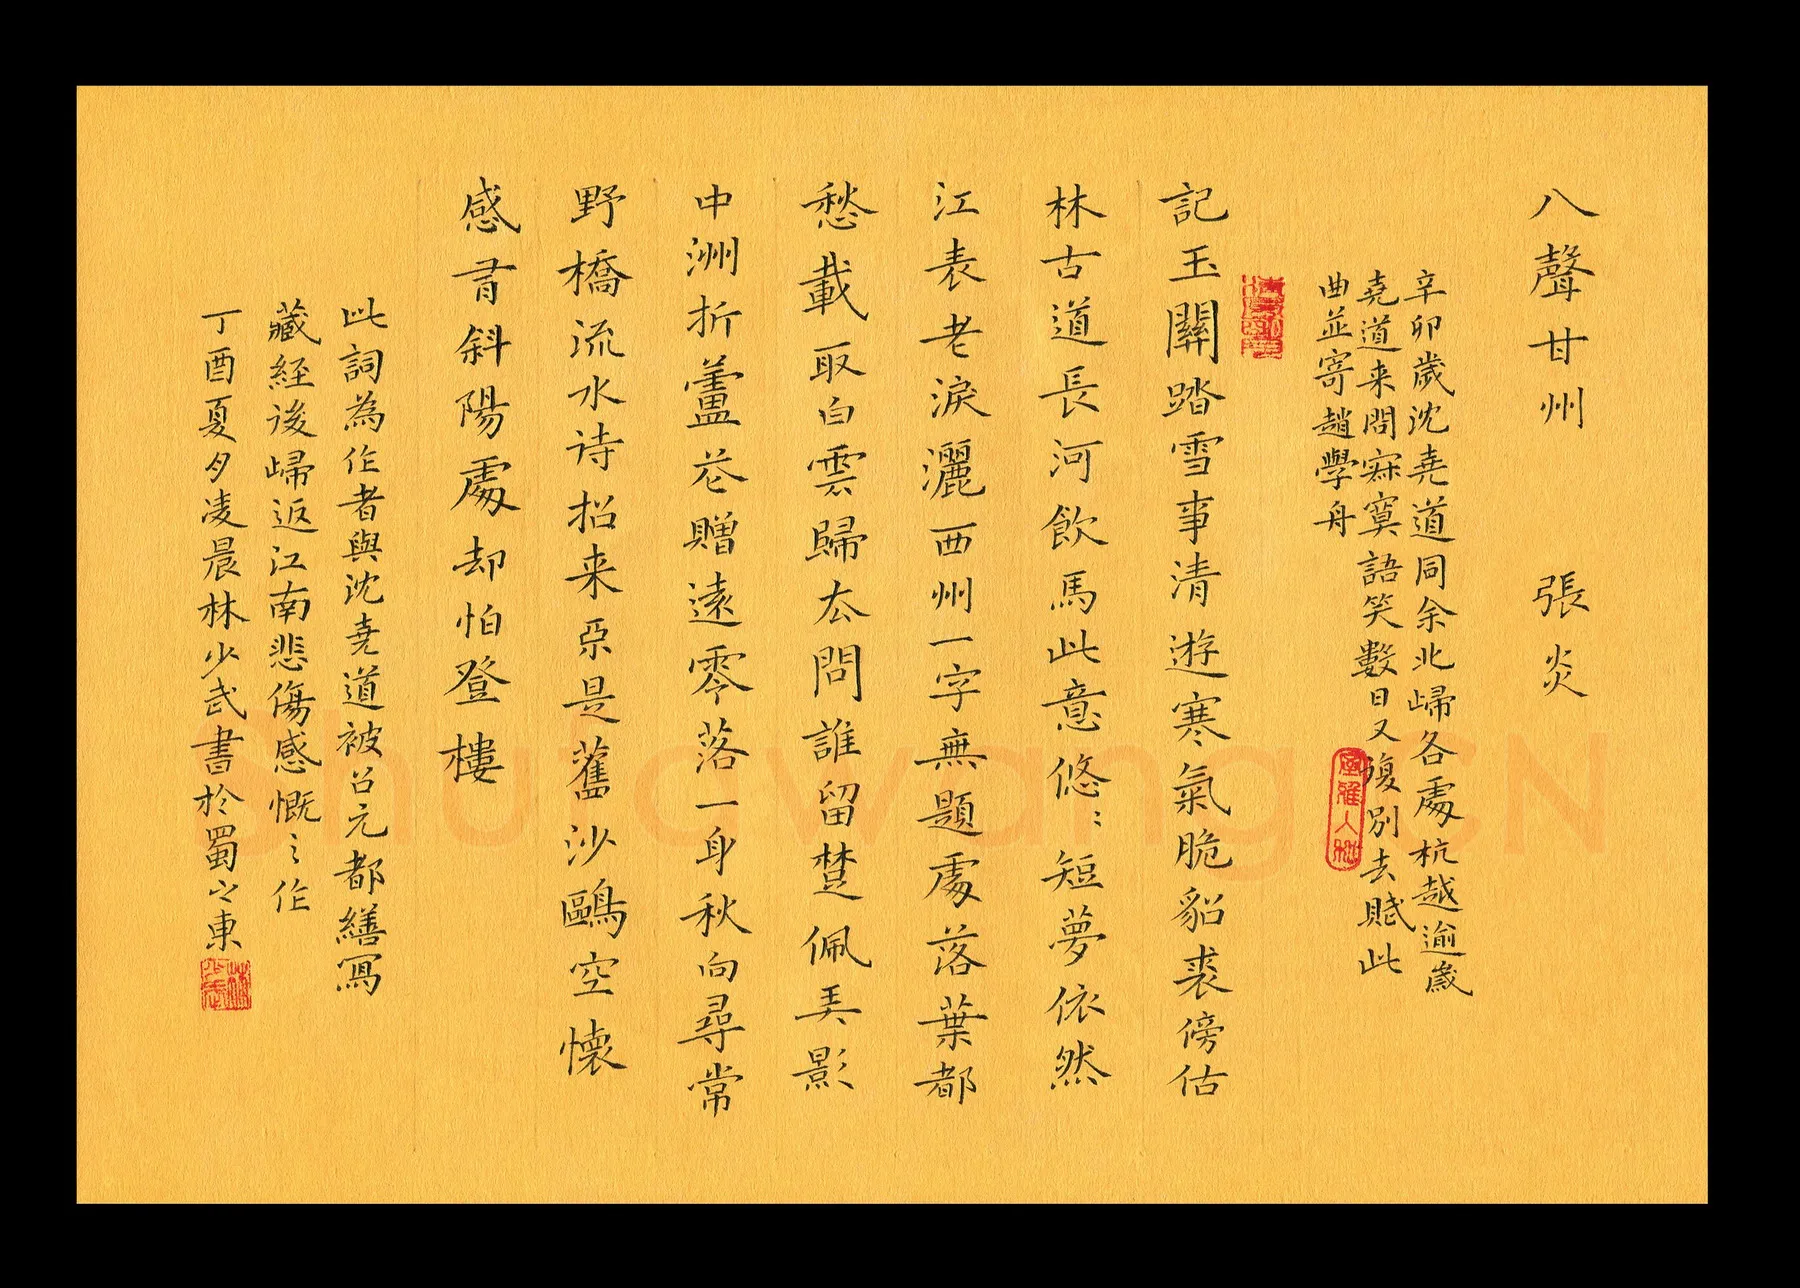 八聲甘州 張炎
辛卯歲沈堯道同余北歸各處杭越逾歲
堯道来問寂寞語笑數日又復別去賦此
曲並寄趙學舟
記玉關踏雪事清遊寒氣脆貂裘傍估
林古道長河飲馬此意悠〻短夢依然
江表老淚灑西州一字無題處落葉都
愁載取白雲歸去問誰留楚佩弄影
中洲折蘆花贈遠零落一身秋向尋常
野橋流水诗招来亞是舊沙鷗空懷
感有斜陽處却怕登樓
此詞為作者與沈堯道被召元都繕寫
藏經後歸返江南悲傷感慨之作
丁酉夏夕凌晨林少武書於蜀之東
Shufawang.CN